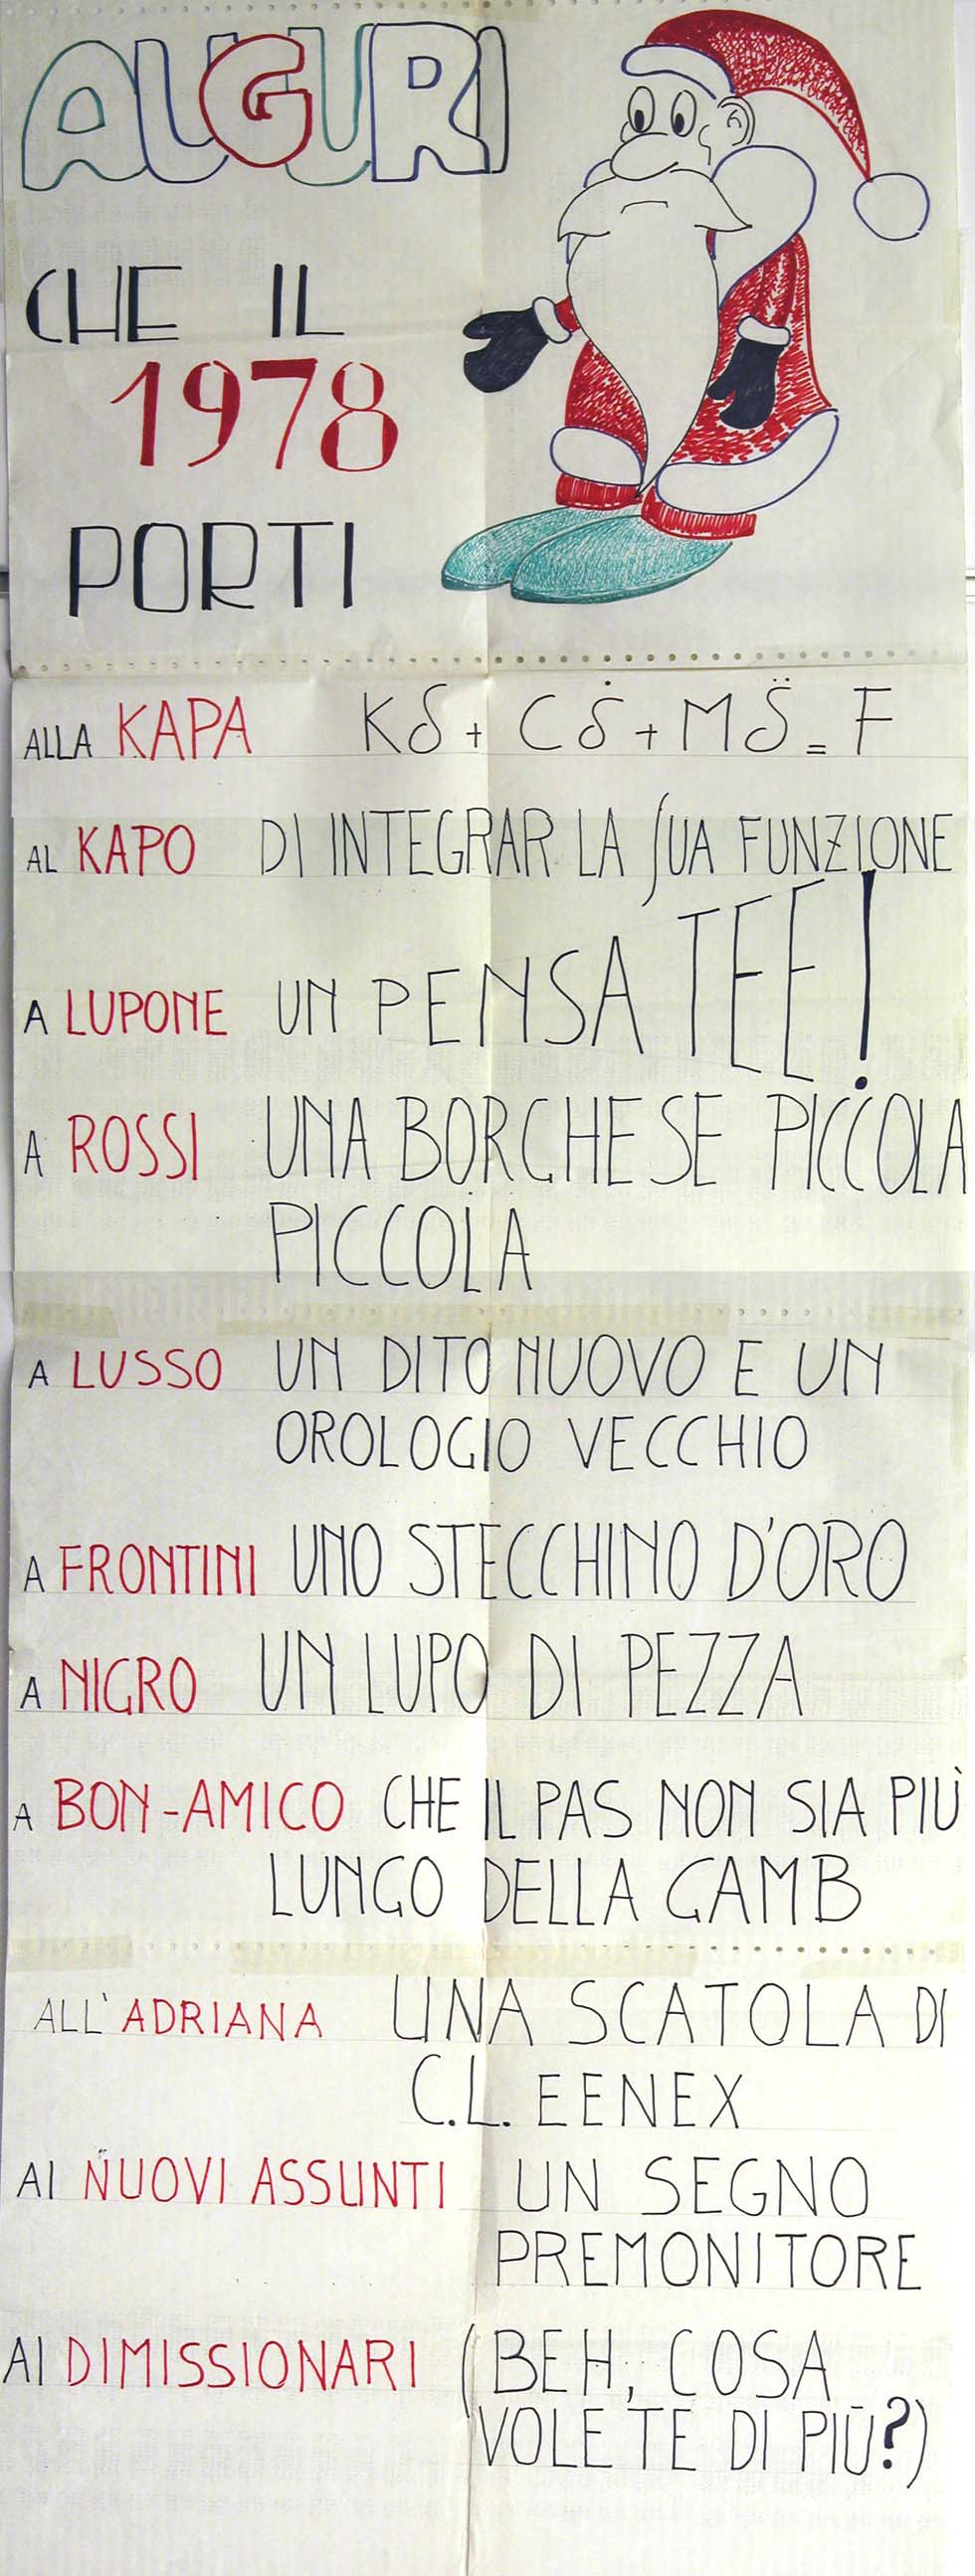 AUGURI
CHE IL
1978
PORTI
ALLA KAPA Kδ + Cδ̇ + Mδ̈ = F
AL KAPO DI INTEGRAR LA ∫UA FUNZIONE
A LUPONE UN PENSATEE!
A ROSSI UNA BORGHESE PICCOLA
PICCOLA
A LUSSO UN DITO NUOVO E UN
OROLOGIO VECCHIO
A FRONTINI UNO STECCHINO D'ORO
A NIGRO UN LUPO DI PEZZA
A BON-AMICO CHE IL PAS NON SIA PIÙ
LUNGO DELLA GAMB
ALL'ADRIANA UNA SCATOLA DI
C.L.EENEX
AI NUOVI ASSUNTI UN SEGNO
PREMONITORE
AI DIMISSIONARI (BEH, COSA
VOLETE DI PIÙ?)